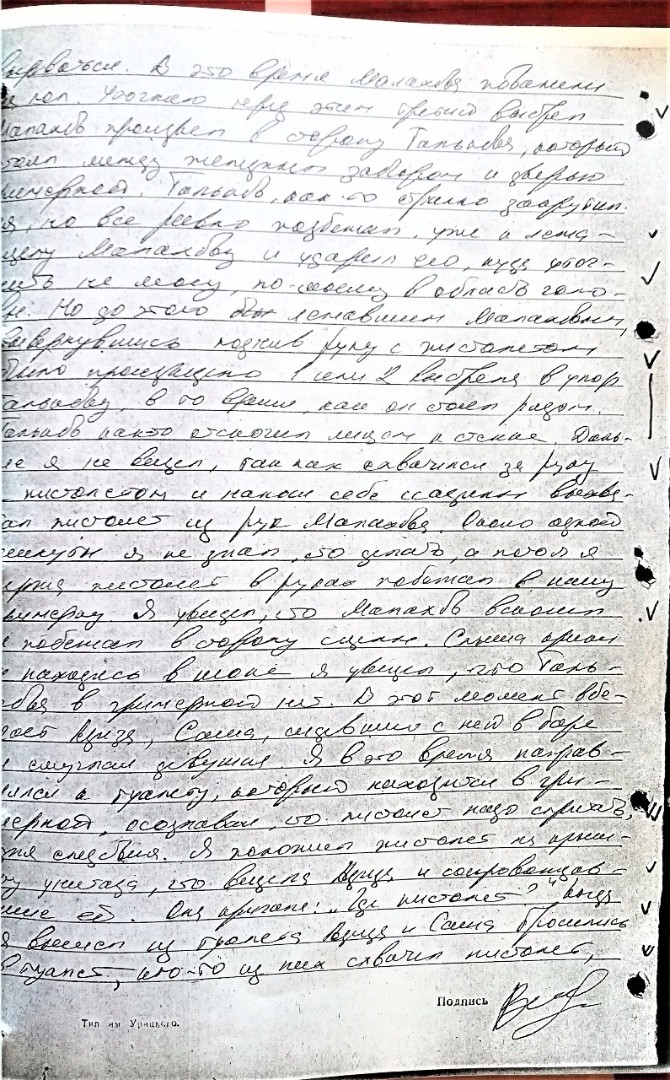 вырваться. В это время Малахова повалили
на пол. Уточняю перед этим третий выстрел
Малахов произвел в сторону Талькова, который
стоял между железным забором и дверью
гримерной. Тальков, как-то странно
ся, но все равно подбежал уже к лежа-
щему Малахову и ударил его, куда уточ-
нить не могу, по-моему в область голо-
вы. Но до этого был лежавшим Малаховым,
вывернувшись поднив руку с пистолетом
было произведено 1 или 2 выстрела в упор
Талькову, в то время, как он стоял рядом.
Тальков как-то отскочил лицом к стене. Даль-
ше я не видел, так как схватился за руку
с пистолетом и нанося себе ссадины выхва-
тил пистолет из рук Малахова. Около одной
минуты я не знал, что делать, а потом я
держа пистолет в руках побежал в нашу
гримерную. Я увидел, что Малахов вскочил
и побежал в сторону сцены. Слыша крики
и находясь в шоке я увидел, что Таль-
кова в гримерной нет. В этот момент вбе-
гает Азиза, Саша, сидевший с ней в баре
и смуглая девушка. Я в это время направ-
лялся к туалету, который находится в гри-
мерной, осознавая, что пистолет надо спрятать,
для следствия. Я положил пистолет на крыш-
ку унитаза, что видела Азиза и сопровождав-
шие её. Она кричала: „Где пистолет?" Когда
я вышел из туалета Азиза и Саша бросились
в туалет, кто-то из них схватил пистолет,
Подпись
Тип им Урицкого.